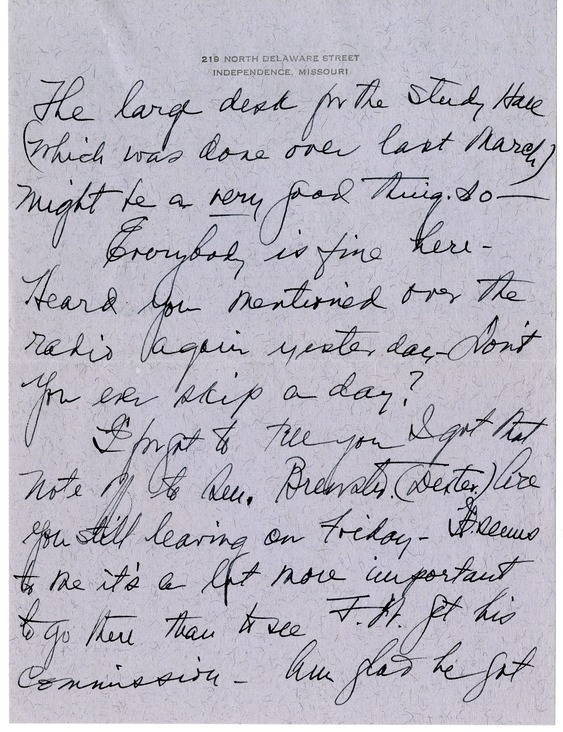 219 NORTH DELAWARE STREET
INDEPENDENCE, MISSOURI
The large desk for the Study Hall
(which was done over last March)
might be a very good thing. So—
Everybody is fine here-
Heard you mentioned over the
radio again yesterday- Don't
you ever skip a day?
I forgot to tell you I got that
note off to Sen. Brewster. (Dexter.) Are
you still leaving on Friday- It seems
to me it's a lot more important
to go there than to see F. H. get his
Commission- Am glad he got